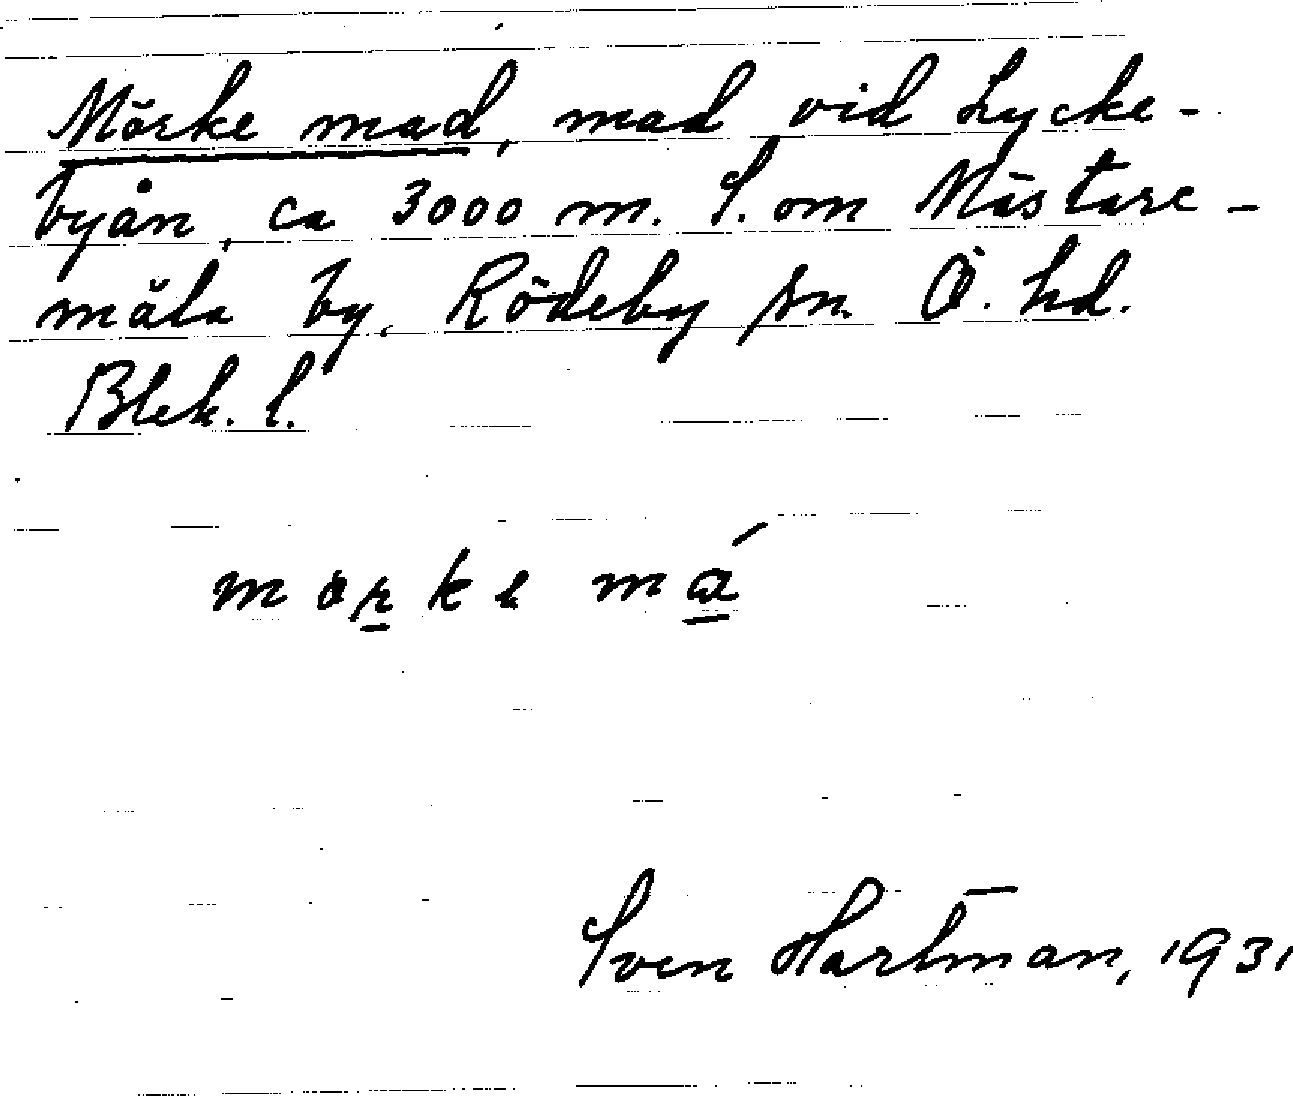 Mörke mad, mad vid Lycke-
byån, ca 3000 m. S. om Mästare-
måla by, Rödeby sn. Ö. hd.
Blek. l.
mörke má
Sven Hartman, 1931